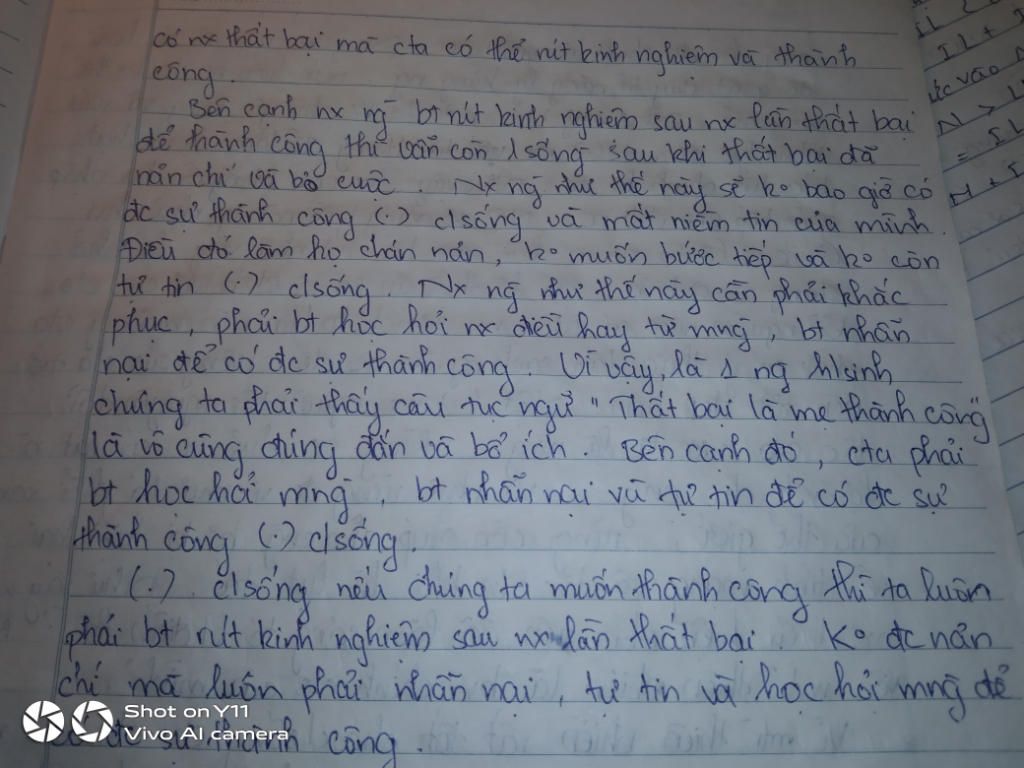 có nx thất bại mà cta có thể rút kinh nghiệm và thành
công.
Bên cạnh nx ng bt rút kinh nghiệm sau nx lần thất bại
để thành công thì vẫn còn 1 sống sau khi thất bại đã
nản chí và bỏ cuộc. Nx ng như thế này sẽ ko bao giờ có
đc sự thành công (.) c/sống và mất niềm tin của mình.
Điều đó làm họ chán nản, ko muốn bước tiếp và ko còn
tự tin (.) c/sống. Nx ng như thế này cần phải khắc
phục, phải bt học hỏi nx điều hay từ mng, bt nhẫn
nại để có đc sự thành công. Vì vậy, là 1 ng h/sinh
chúng ta phải thấy câu tục ngữ "Thất bại là mẹ thành công"
là vô cùng đúng đắn và bổ ích. Bên cạnh đó, cta phải
bt học hỏi mng, bt nhẫn nại và tự tin để có đc sự
thành công (.) c/sống.
(.) c/sống nếu chúng ta muốn thành công thì ta luôn
phải bt rút kinh nghiệm sau nx lần thất bại. Ko đc nản
chí mà luôn phải nhẫn nại, tự tin và học hỏi mng để
có đc sự thành công.
Shot on Y11
Vivo AI camera